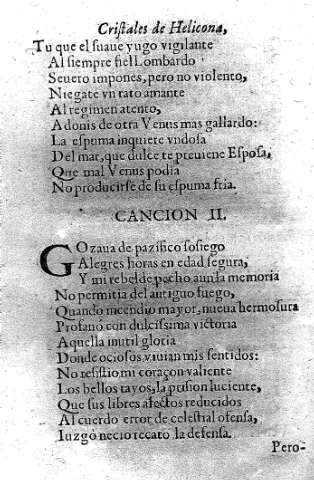 Cristales de Helicona,
Tu que el suaue yugo vigilante
Al siempre fiel Lombardo
Seuero impones, pero no violento,
Niegate vn rato amante
Al regimen atento,
Adonis de otra Venus mas gallardo:
La espuma inquiere vndosa
Del mar, que dulce te preuiene Esposa,
Que mal Venus podia
No producirse de su espuma fria.
CANCION II.
GOzaua de pazifico sosiego
Alegres horas en edad segura,
Y mi rebelde pecho aun la memoria
No permitia del antiguo fuego,
Quando incendio mayor, nueua hermosura
Profanó con dulcissima victoria
Aquella inutil gloria
Donde ociosos viuian mis sentidos:
No resistio mi coraçon valiente
Los bellos rayos, la prision luciente,
Que sus libres afectos reducidos
Al cuerdo error de celestial ofensa,
Iuzgò necio recato la defensa.
Pero-